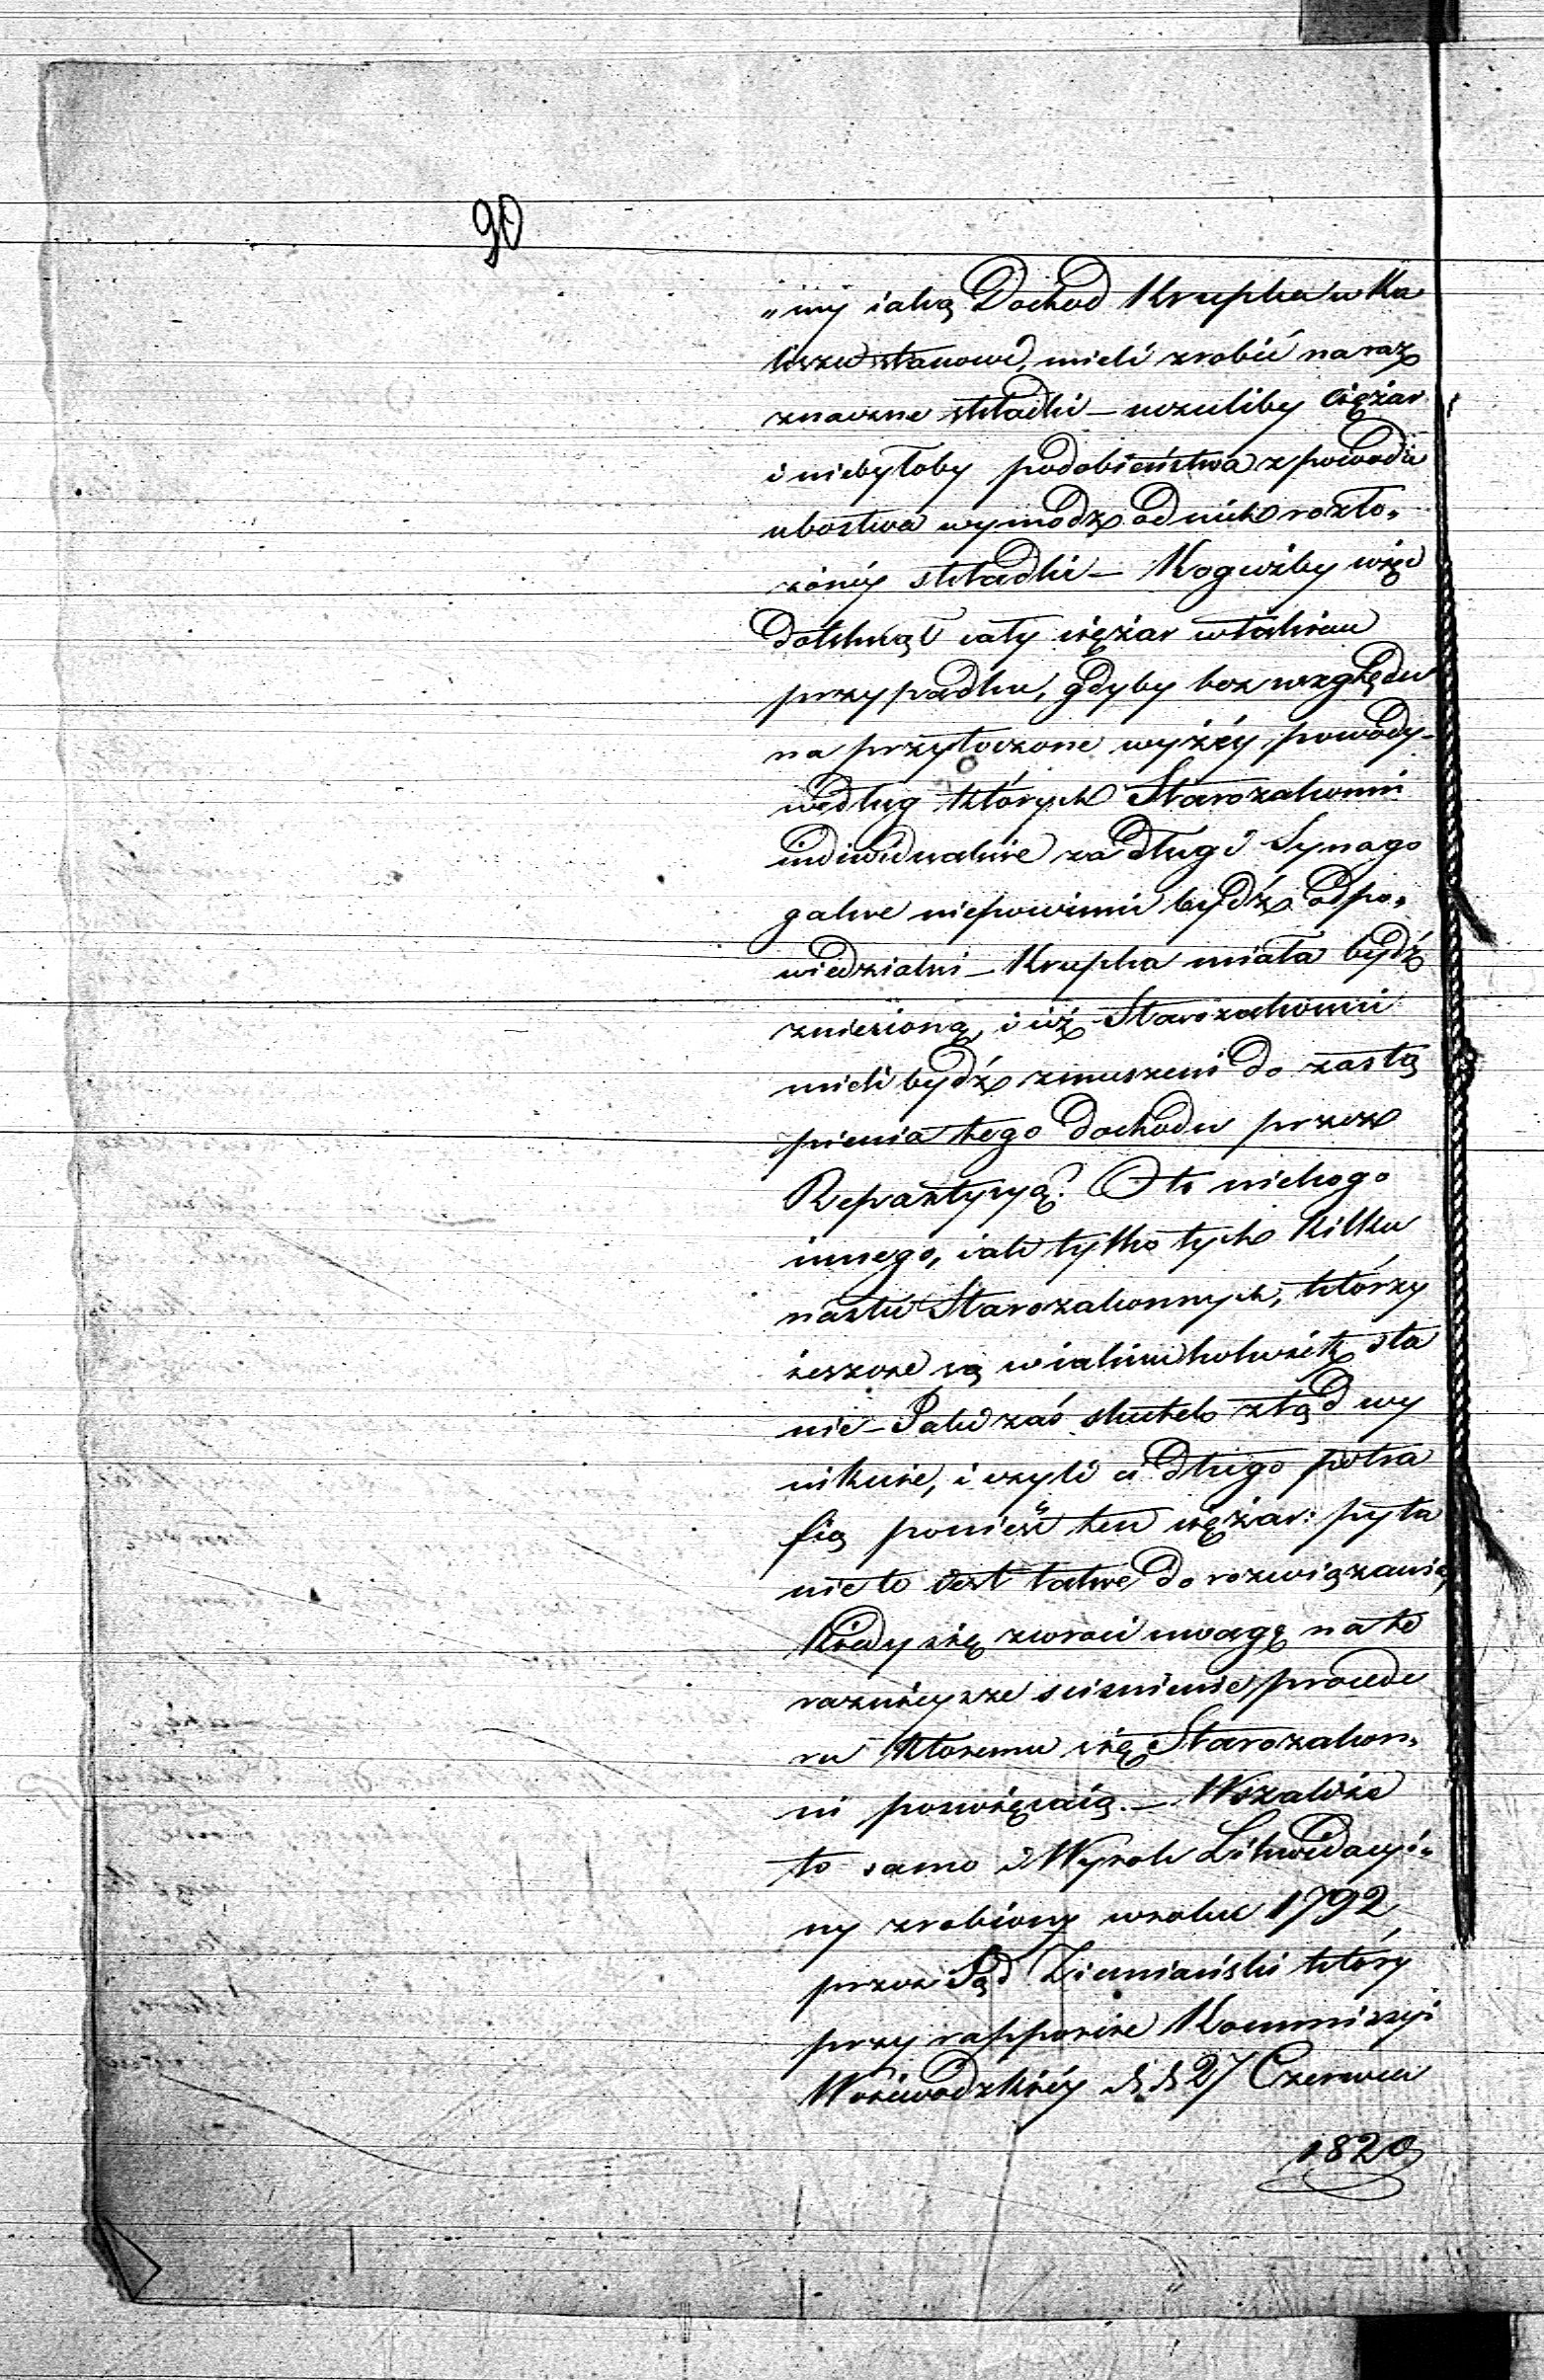 90
„my iaką Dochod Krupka w Ka
liszu stanowi, mieli zrobić naraz
znaczne składki – uczuliby ciężar
i niebyłoby podobieństwa z powodu
ubostwa wymodz od nich rozło„
żoney składki – Kogożby więc
dotknął cały ciężar w takim
przypadku, gdyby bez względu
na przytoczone wyżéy powody –
według których Starozakonni
indiwidualnie za długi Synago
galne niepowinni bydź odpo„
wiedzialni – Krupka miała bydź
zniesioną, i iż Starozakonni
mieli bydź zmuszeni do zastą
pienia tego dochodu przez
Repartycyą? Oto nikogo
innego, iak tylko tych kilku
nastu Starozakonnych, którzy
ieszcze są w iakim kolwiek sta
nie – Jaki zaś skutek ztąd wy
niknie, i czyli ci długo potra
fią ponieść ten ciężar: pyta
nie to iest łatwe do rozwiązania,
Kiedy się zwroci uwagę na te
raznieysze sciśnienie procede
ru któremu się Starozakon„
ni poswięcaią. – Wszakże
to samo i Wyrok Likwidacyi„
ny zrobiony w roku 1792
przez Sąd Ziemiański który
przy rapporcie Kommissyi
Woiewodzkiéy d. d. 27 Czerwca
1820